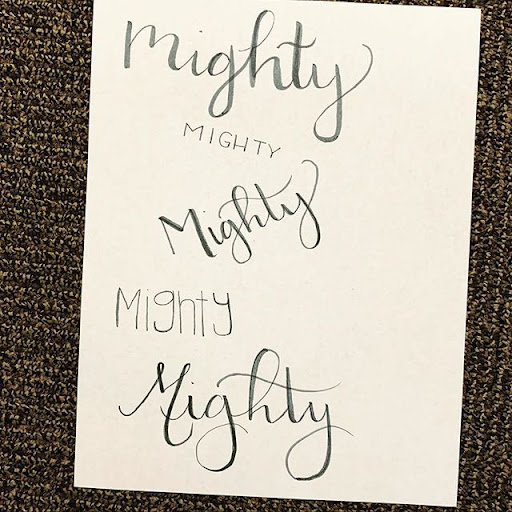 mighty
MIGHTY
Mighty
Mighty
Mighty